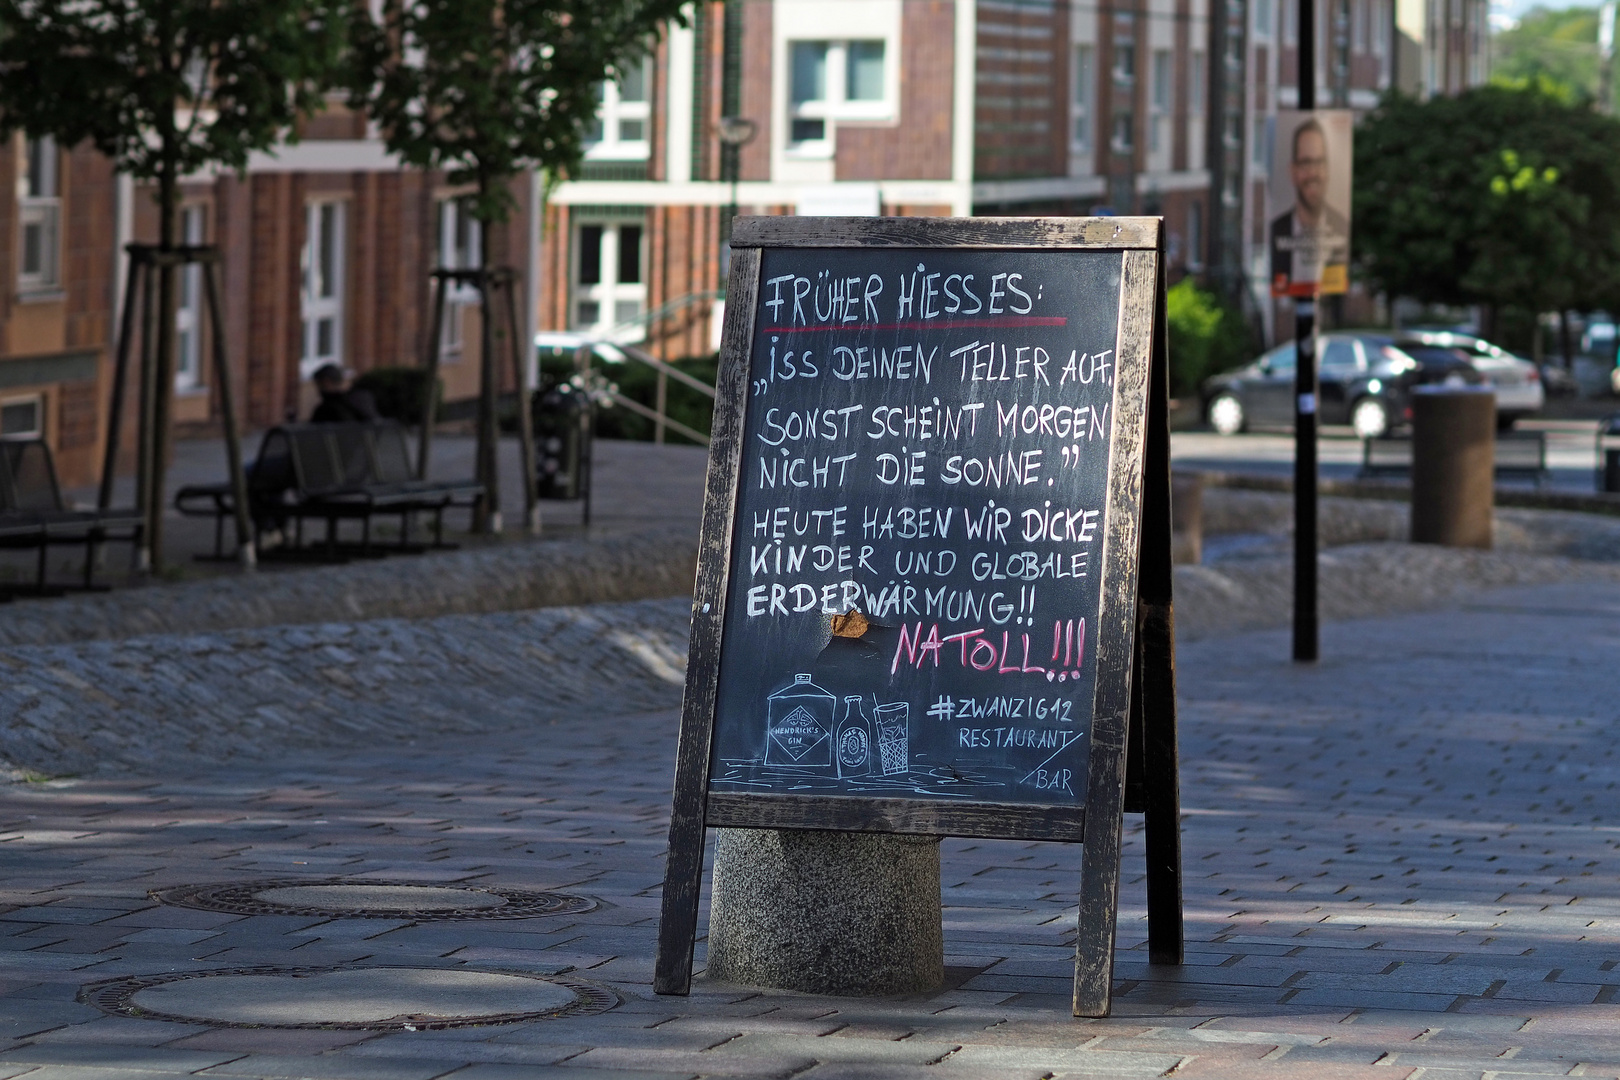 FRÜHER HIESS ES:
„ISS DEINEN TELLER AUF,
SONST SCHEINT MORGEN
NICHT DIE SONNE.”
HEUTE HABEN WIR DICKE
KINDER UND GLOBALE
ERDERWÄRMUNG!!
NA TOLL!!!
#ZWANZIG12
RESTAURANT/
/BAR
HENDRICK'S
GIN